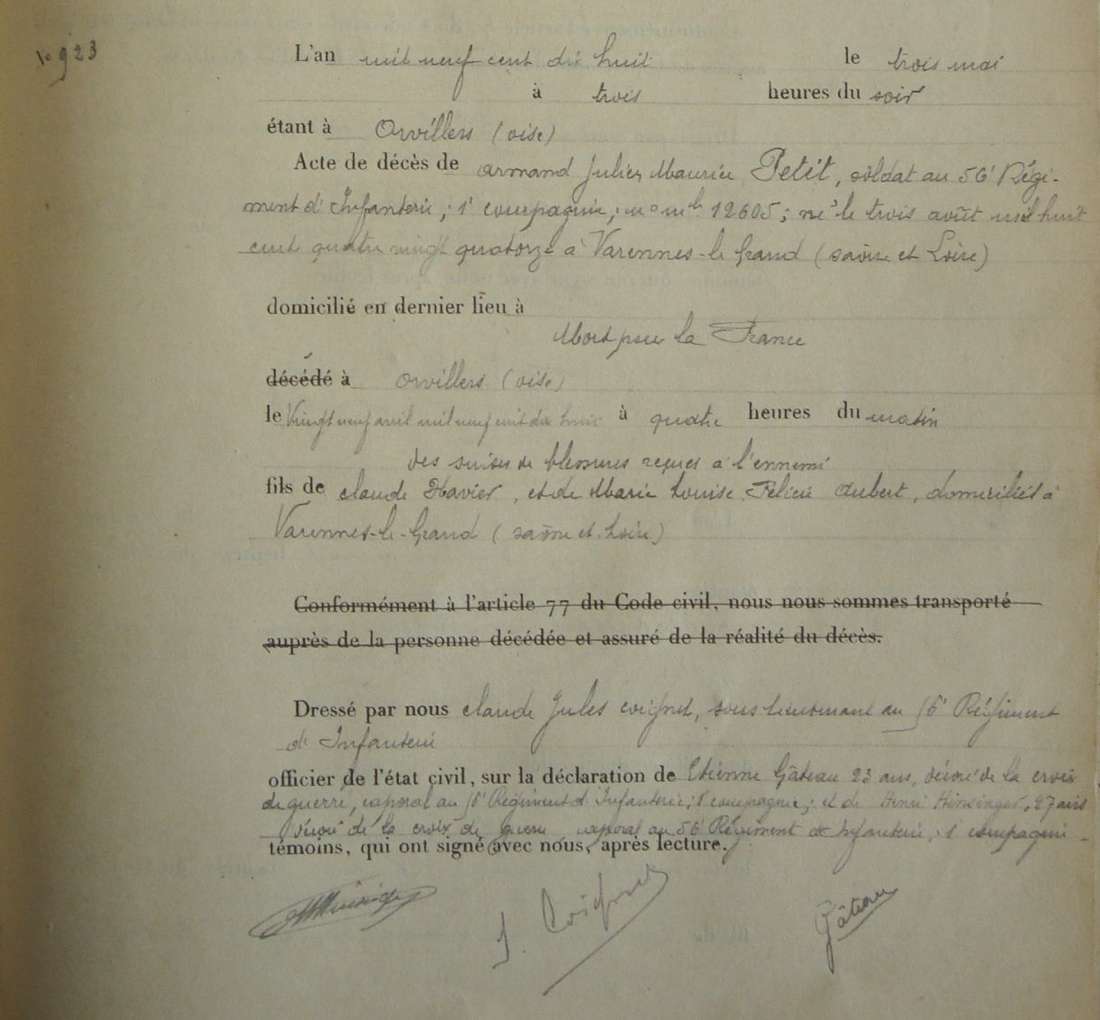 N° 923
L'an mil neuf cent dix huit le trois mai
à trois heures du soir
étant à Orvillers (oise)
Acte de décès de armand Julien Maurice Petit, soldat au 56e Régi-
ment d'Infanterie, 1e compagnie, no mle 12605; né le trois août mil huit
cent quatre vingt quatorze à Varennes-le Grand (saône et Loire)
domicilié en dernier lieu à
Mort pour la France
décédé à Orvillers (oise)
le Vingt neuf avril mil neuf cent dix huit à quatre heures du matin
des suites de blessures reçues à l'ennemi
fils de claude Xavier, et de Marie Louise Félicie Aubert, domiciliés à
Varennes-le-Grand (saône et Loire)
Conformément à l'article 77 du Code civil, nous nous sommes transporté
auprès de la personne décédée et assuré de la réalité du décès.
Dressé par nous claude Jules coignet, sous lieutenant au 56e Régiment
d'Infanterie
officier de l'état civil, sur la déclaration de Etienne Gâteau 23 ans, décoré de la croix
de guerre, caporal au 56e Régiment d'Infanterie; 1e compagnie; et de Henri 27 ans
décoré de la croix de guerre, caporal au 56e Régiment d'Infanterie, 1e compagnie
témoins, qui ont signé avec nous, après lecture.
J. Coignet Gâteau